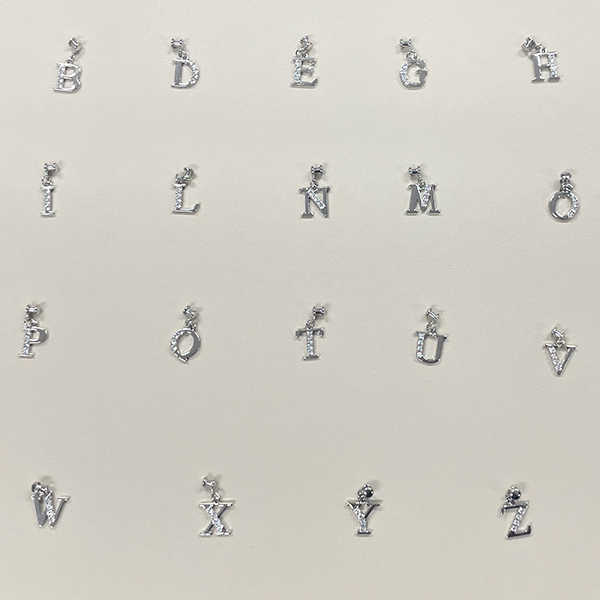 B D E G H
I L N M O
P Q T U V
W X Y Z